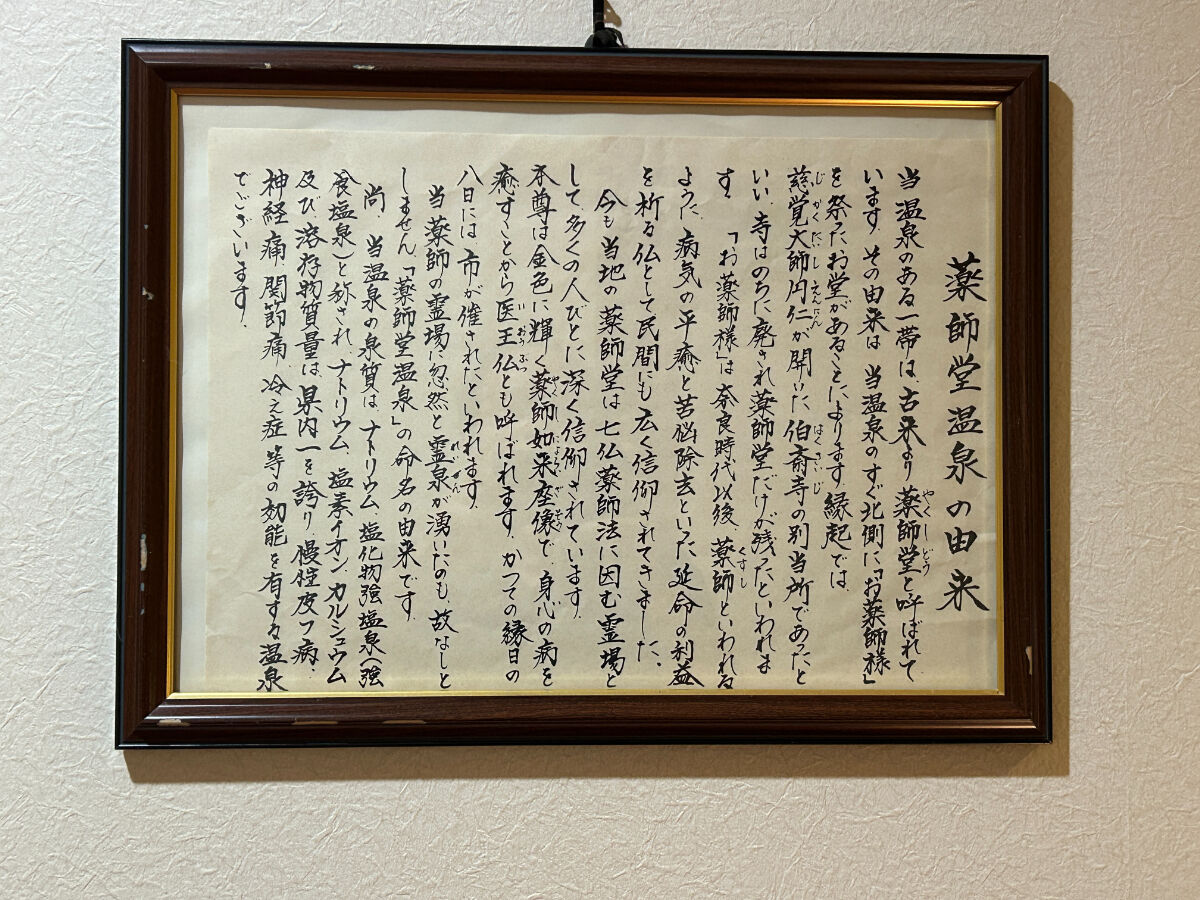 薬師堂温泉の由来
当温泉のある一帯は、古来より薬師堂と呼ばれて
います。その由来は、当温泉のすぐ北側に「お薬師様」
を祭ったお堂があることによります。縁起では、
慈覚大師円仁が開いた伯斎寺の別当所であったと
いい、寺はのちに廃され薬師堂だけが残ったといわれま
す。「お薬師様」は奈良時代以後、薬師といわれる
ように、病気の平癒と苦悩除去といった延命の利益
を祈る仏として民間にも広く信仰されてきました。
今も当地の薬師堂は七仏薬師法に因む霊場と
して多くの人びとに深く信仰されています。
本尊は金色に輝く薬師如来座像で、身心の病を
癒すことから医王仏とも呼ばれます。かつての縁日の
八日には、市が催されたといわれます。
当薬師の霊場に忽然と霊泉が湧いたのも、故なしと
しません。「薬師堂温泉」の命名の由来です。
尚、当温泉の泉質は、ナトリウム塩化物強塩泉（強
食塩泉）と称され、ナトリウム、塩素イオン、カルシュウム
及び、溶存物質量は、県内一を誇り、慢性皮フ病、
神経痛、関節痛、冷え症、等の効能を有する温泉
でございます。